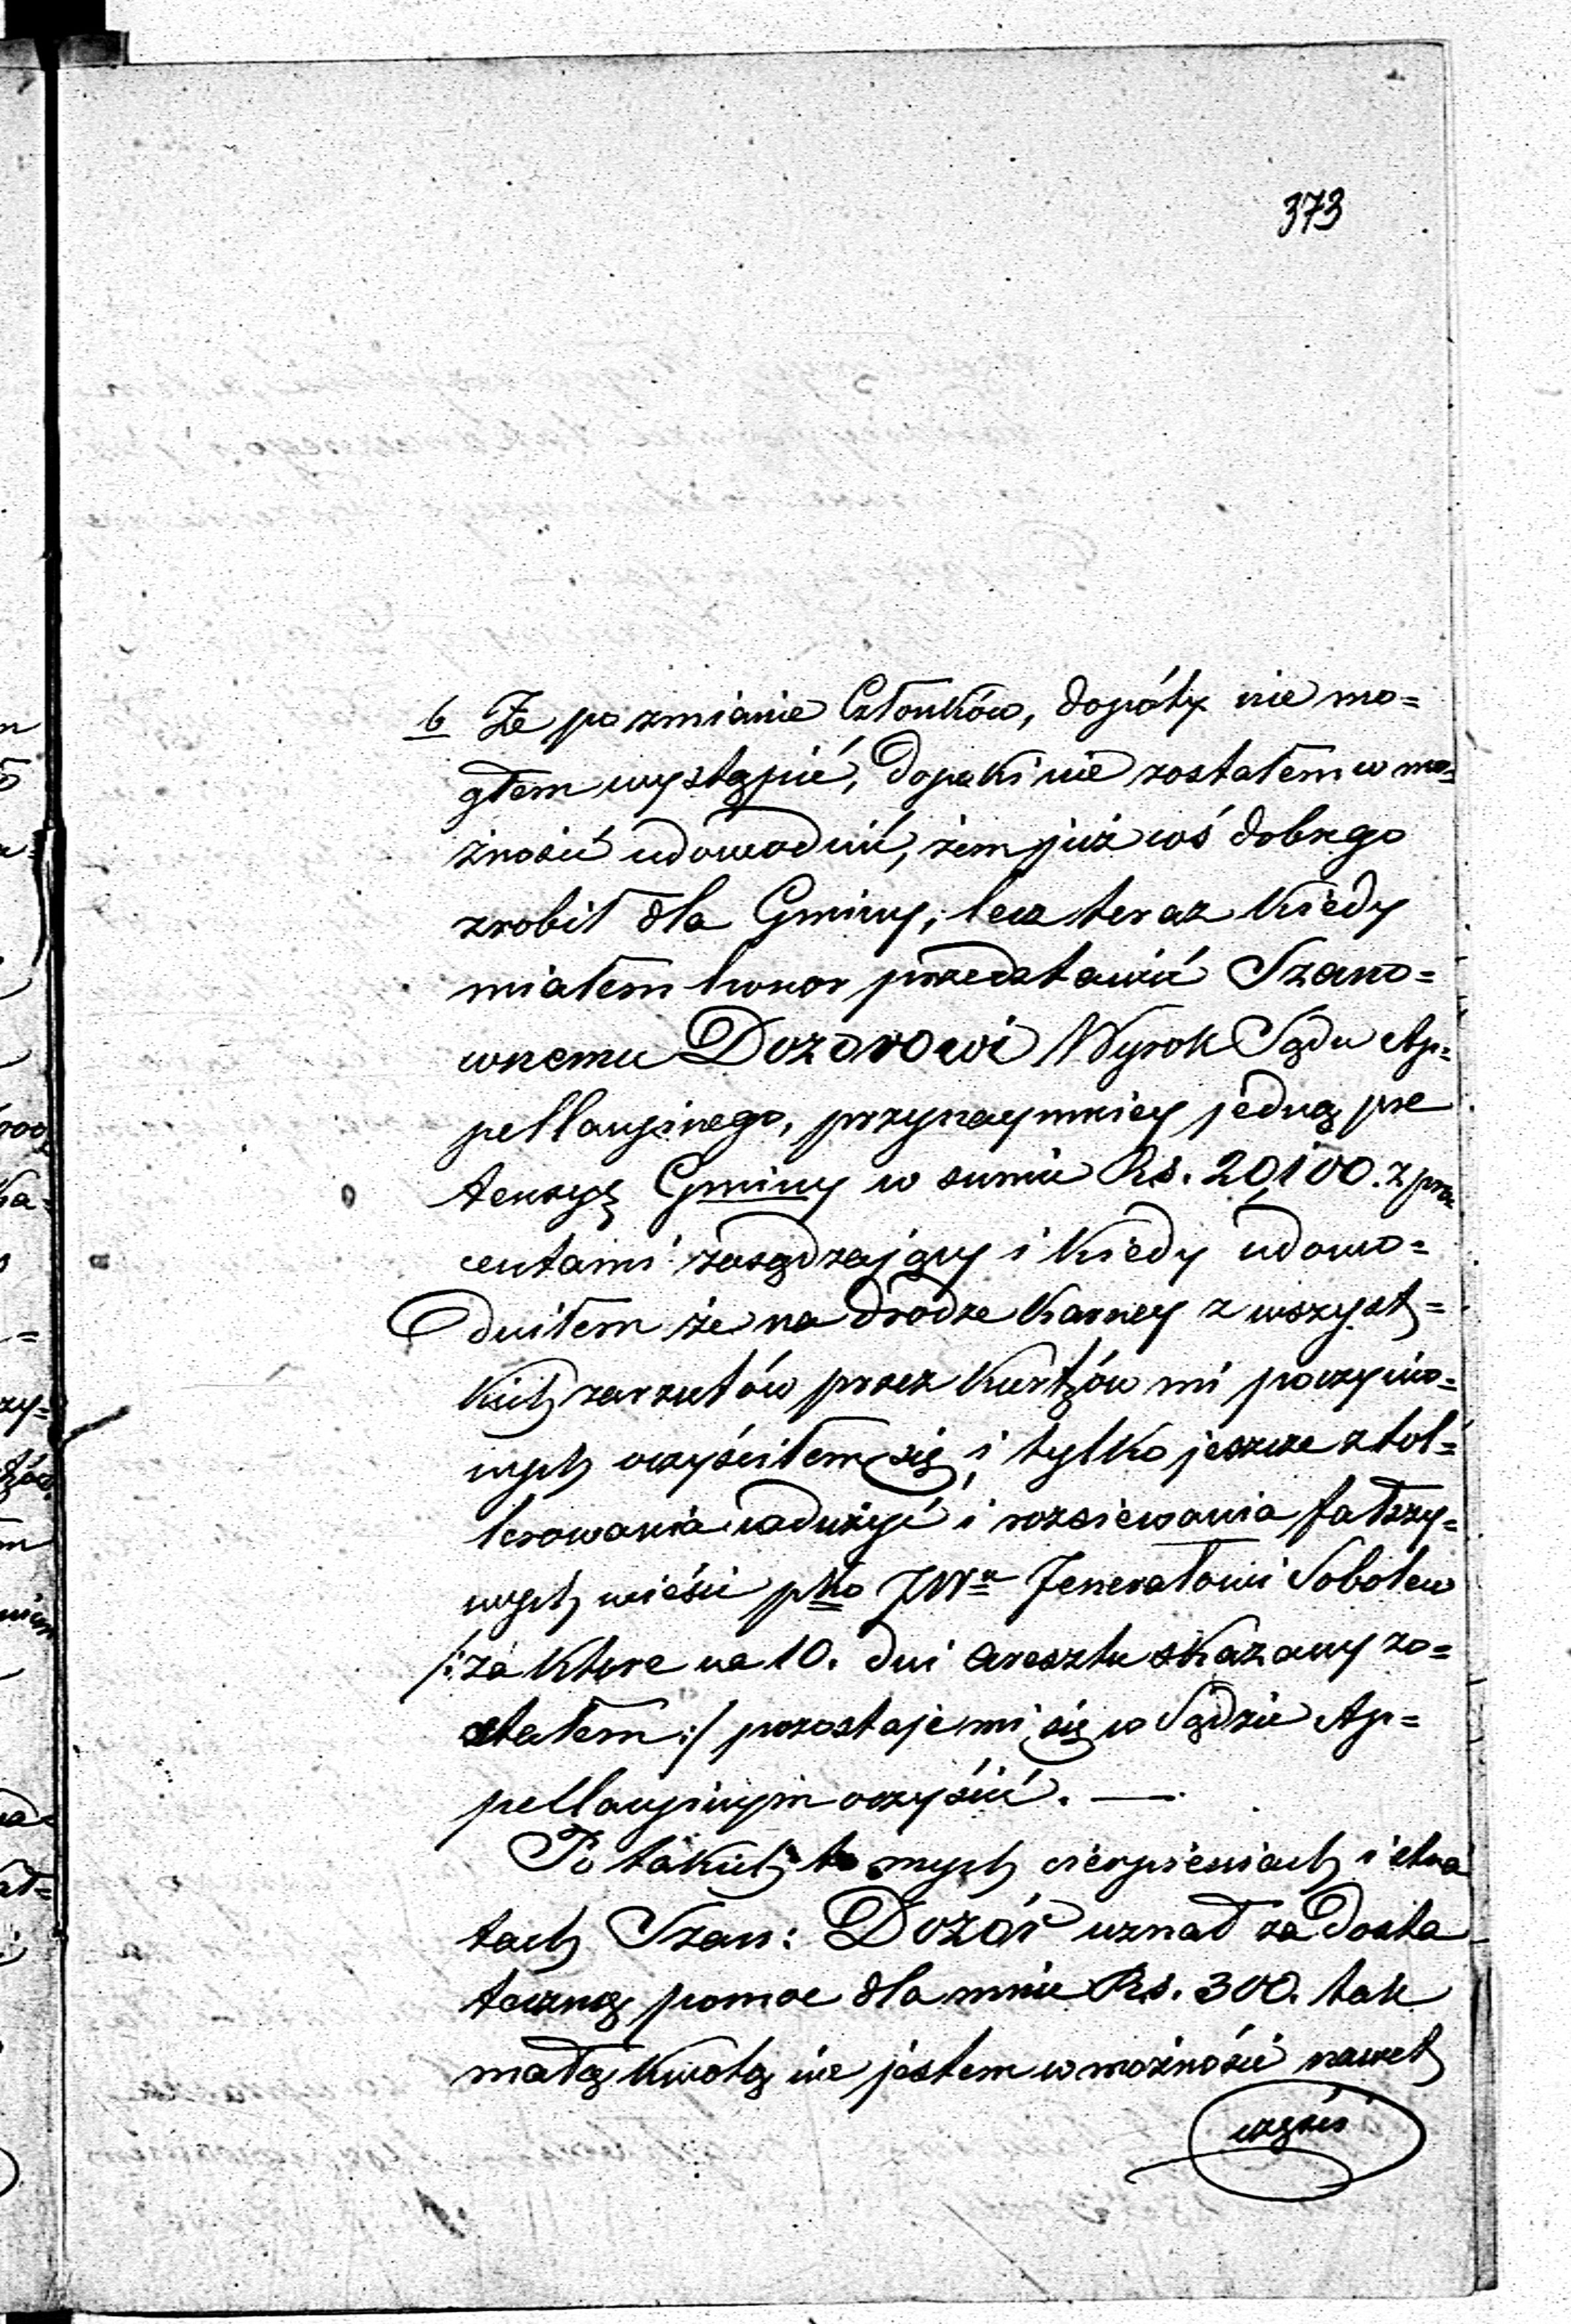 373
6 Że po zmianie Członków, dopóty nie mo=
głem wystąpić, dopoki nie zostałem w mo=
żności udowodnić, żem już coś dobrego
zrobił dla Gminy; lecz teraz kiedy
miałem honor przedstawić Szano=
wnemu Dozorowi Wyrok Sądu Ap=
pellacyjnego, przynaymniey jedną pre
tensyę Gminy w sumie Rs. 20100. z pro
centami zasądzający i kiedy udowo=
dniłem że na drodze karney z wszyst=
kich zarzutów przez Kurtzów mi poczynio=
nych oczyściłem się i tylko jeszcze z tol=
lerowania nadużyć i rozsiewania fałszy=
wych wieści pko JWu Jenerałowi Sobolew
/: za które na 10. dni aresztu skazany zo=
stałem :/ pozostaje mi się w Sądzie Ap=
pellacyjnym oczyścić. —
Po takich to mych cierpieniach i stra
tach Szan: Dozór uznał za dosta
teczną pomoc dla mnie Rs. 300. tak
małą kwotą nie jestem w możności nawet
części